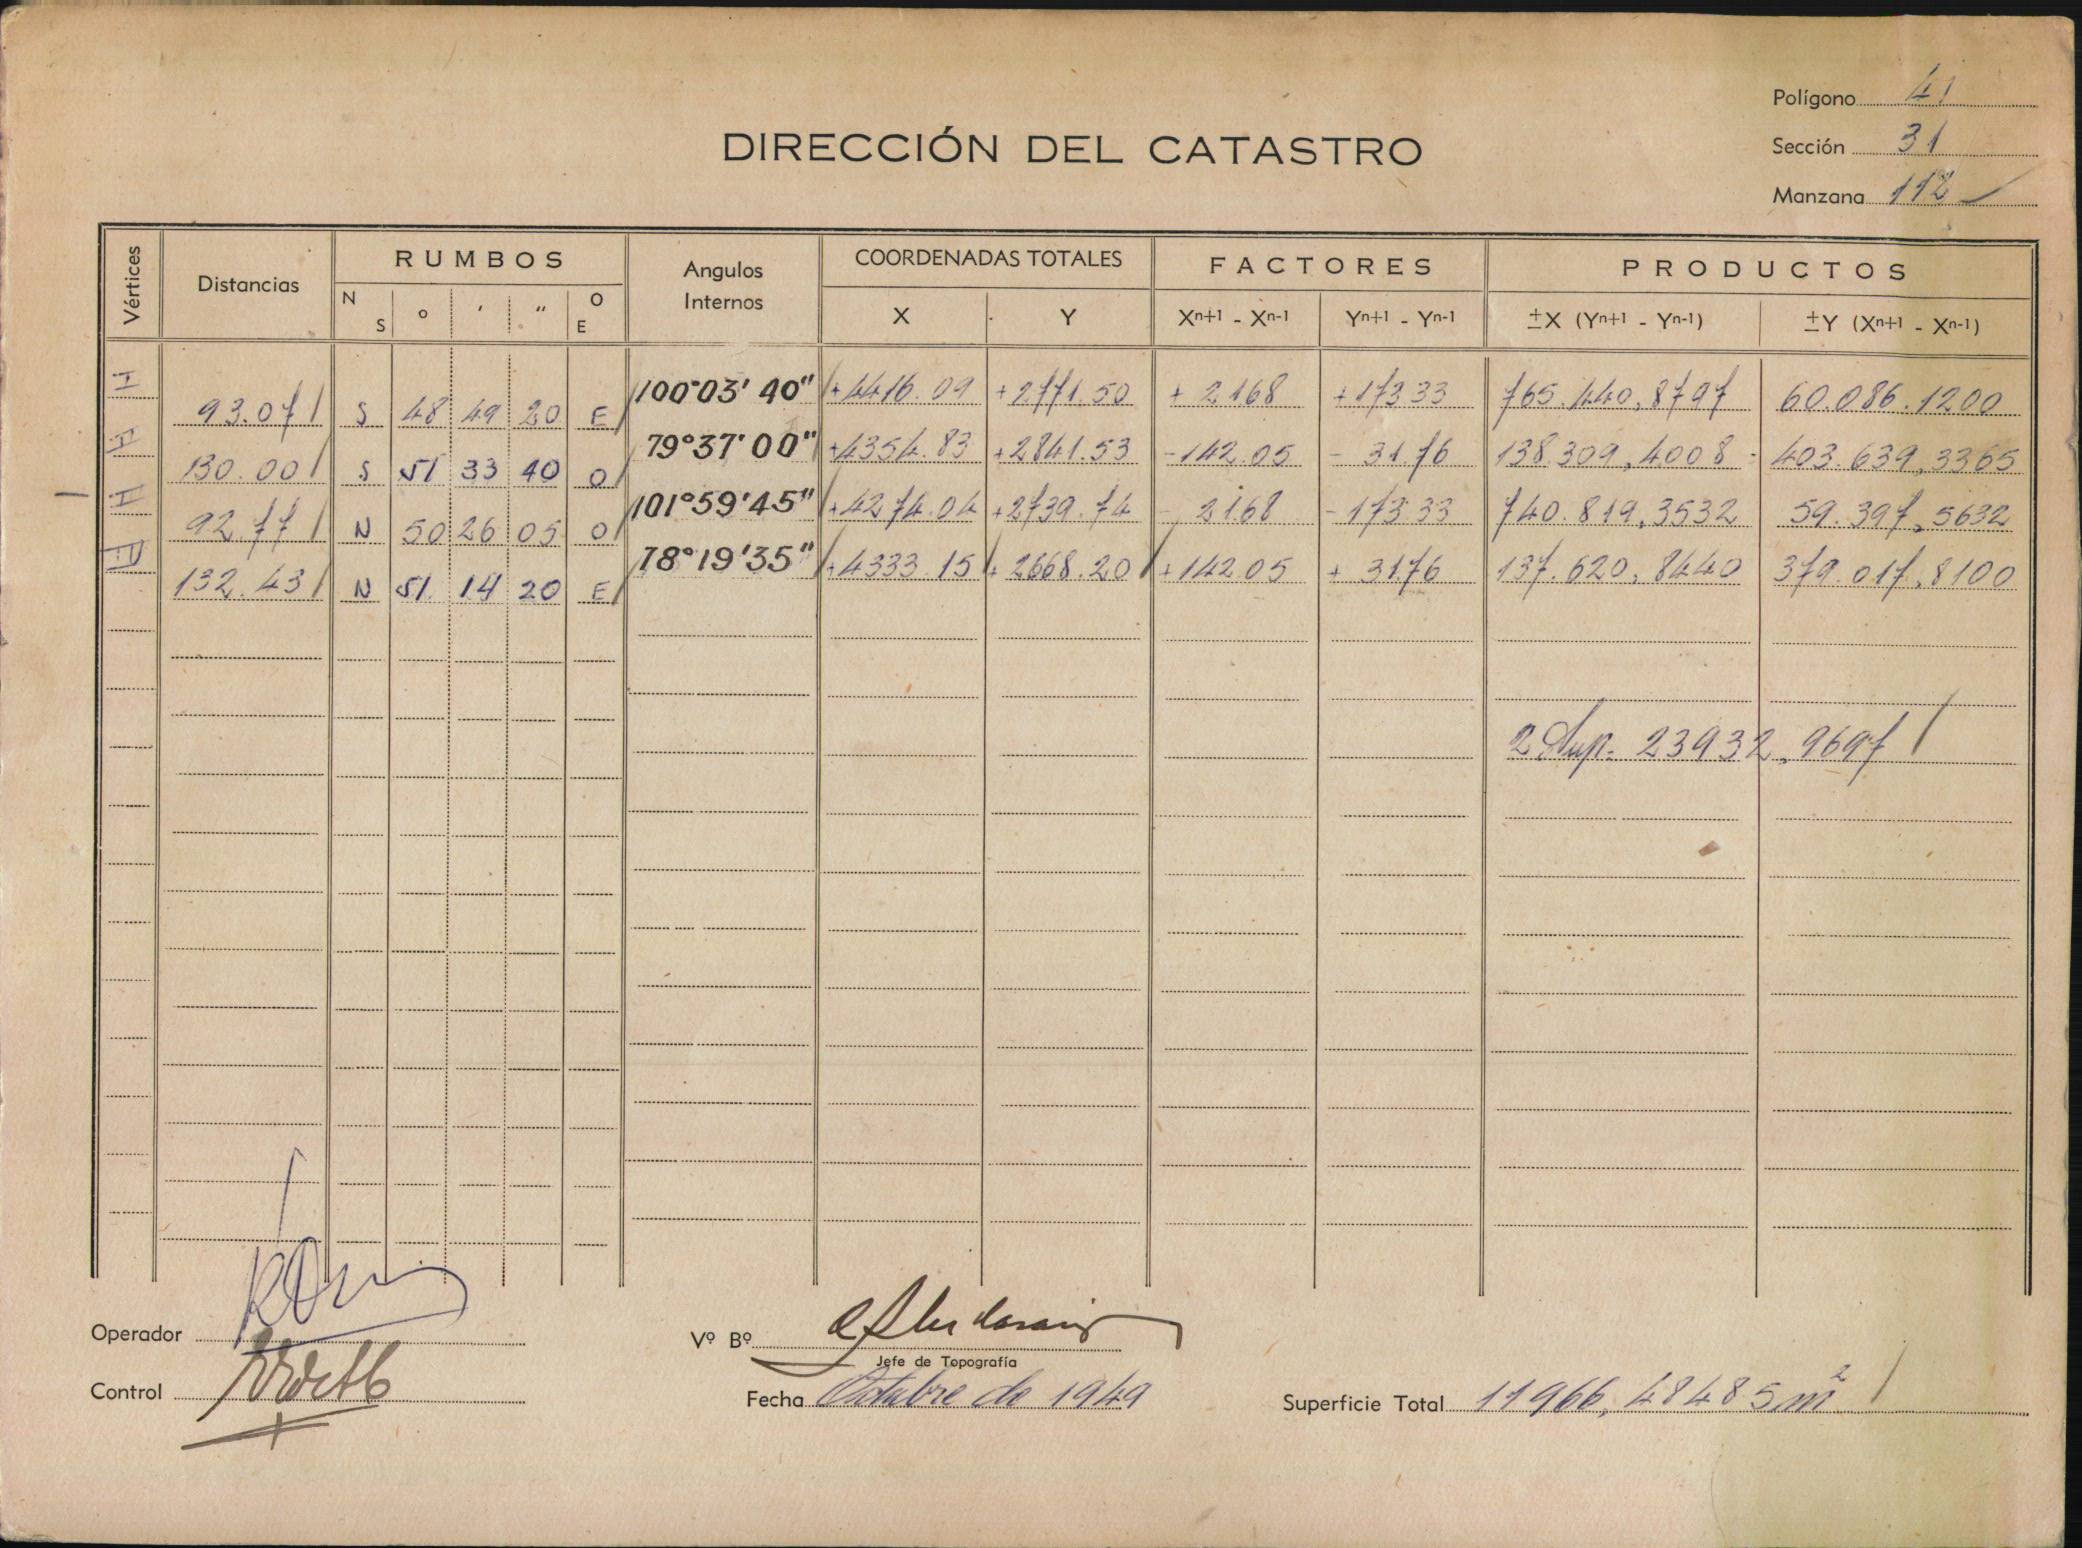 Polígono 41
DIRECCIÓN DEL CATASTRO
Sección 31
Manzana 112
Vértices Distancias RUMBOS Angulos Internos COORDENADAS TOTALES FACTORES PRODUCTOS
N S ° ' " O E X Y Xn+1 - Xn-1 Yn+1 - Yn-1 ±X (Yn+1 - Yn-1) ±Y (Xn+1 - Xn-1)
I 93.07 S 48 49 20 E 100°03'40" +4416.09 +2771.50 + 21.68 +173.33 765.440,8797 60.086.1200
II 130.00 S 51 33 40 O 79°37'00" +4354.83 +2841.53 -142.05 - 31.76 138.309,4008 - 403.639,3365
III 92.77 N 50 26 05 O 101°59'45" +4274.04 +2739.74 - 21.68 -173.33 740.819,3532 59.397,5632
IV 132.43 N 51 14 20 E 78°19'35" +4333.15 + 2668.20 +142.05 + 31.76 137.620,8440 379.017,8100
2 Sup. 23932,9697
Operador
Vº Bº
Jefe de Topografía
Control
Fecha Octubre de 1949
Superficie Total 11966,48485 m²